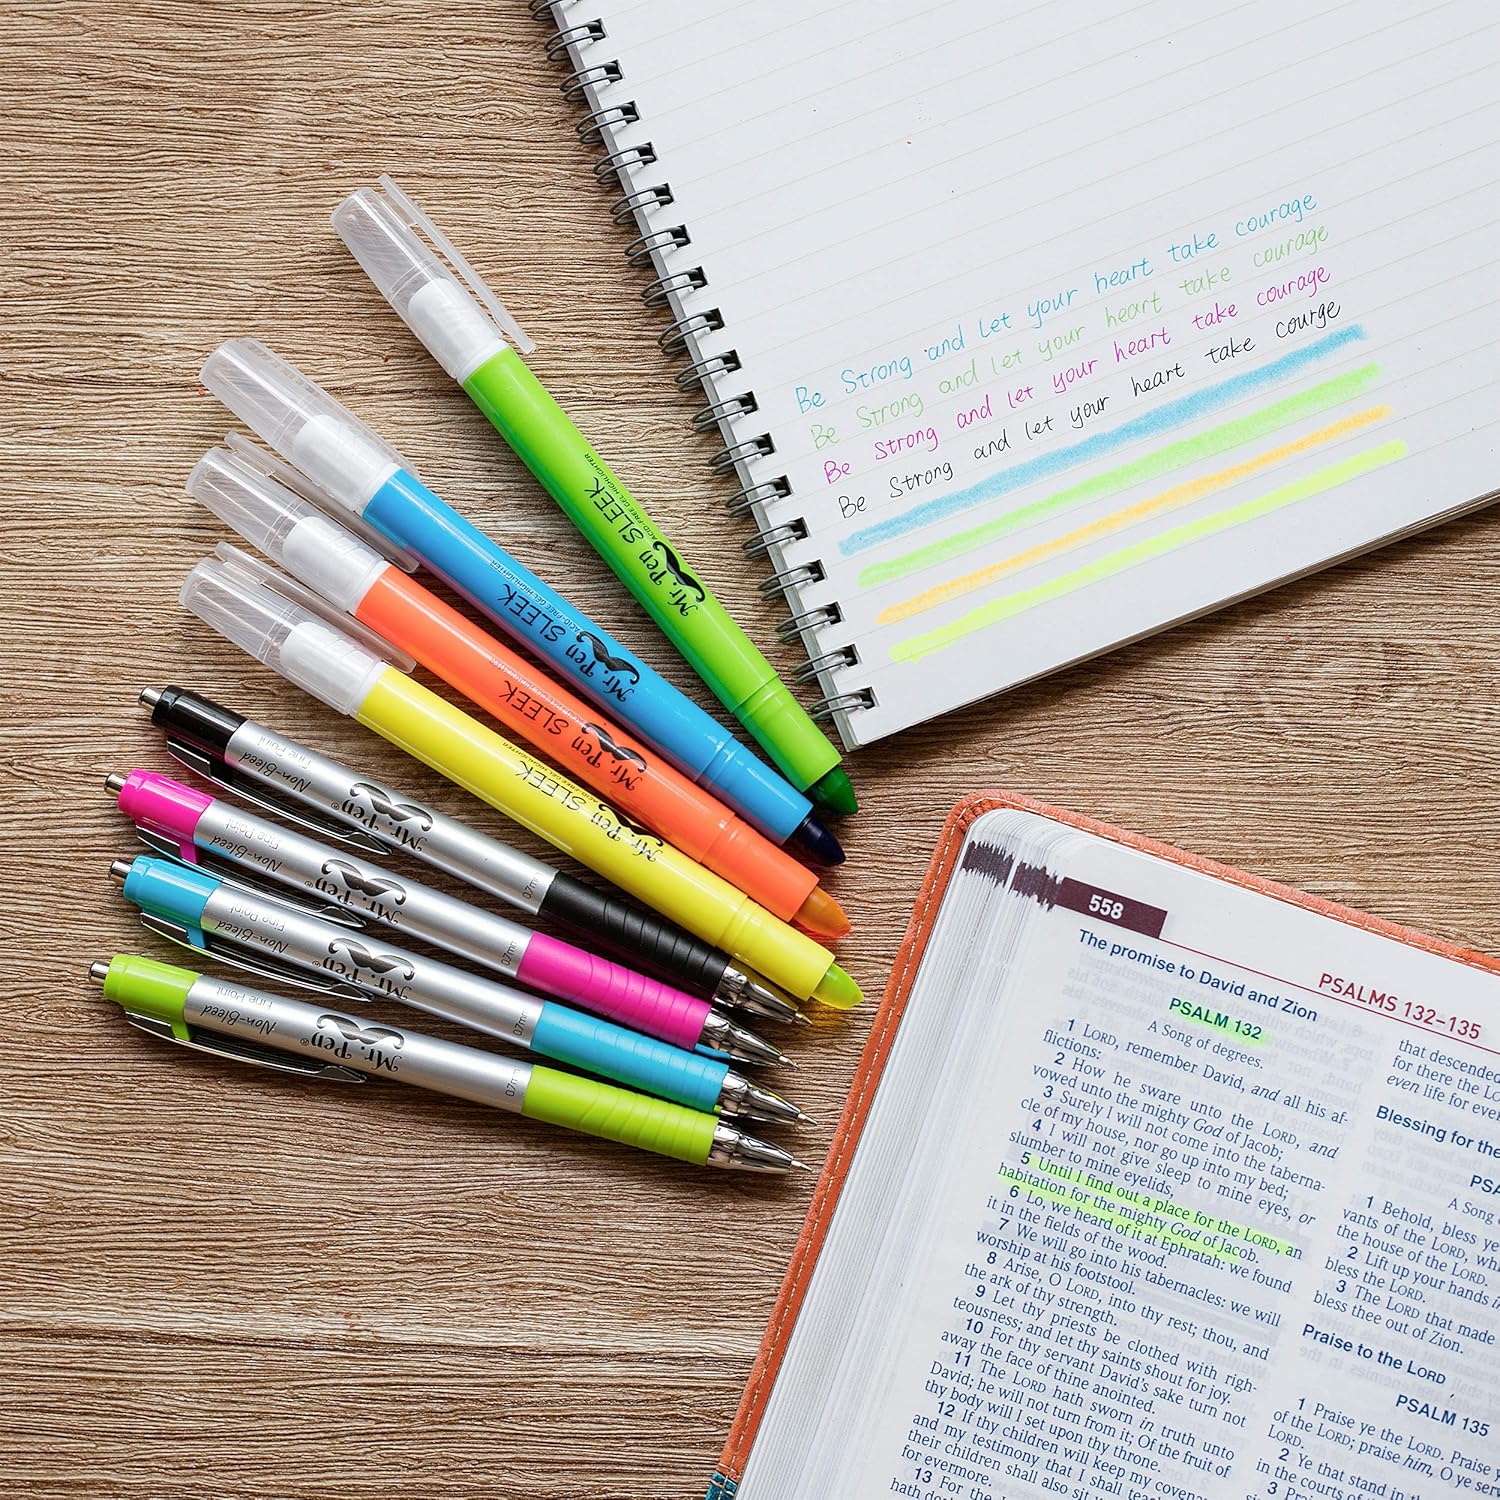 Be Strong and let your heart take courage
Be Strong and let your heart take courage
Be Strong and let your heart take courage
Be Strong and let your heart take courge
Mr. Pen SLEEK
ACID-FREE GEL HIGHLIGHTER
Mr. Pen SLEEK
ACID-FREE GEL HIGHLIGHTER
Mr. Pen SLEEK
Mr. Pen SLEEK
ACID-FREE GEL HIGHLIGHTER
Fine Point
Non-Bleed
Mr. Pen®
0.7mm
Fine Point
Non-Bleed
Mr. Pen®
0.7mm
Fine Point
Non-Bleed
Mr. Pen®
0.7mm
Fine Point
Non-Bleed
Mr. Pen®
0.7mm
558
PSALMS 132–135
The promise to David and Zion
PSALM 132
A Song of degrees.
1 LORD, remember David, and all his af-
flictions:
2 How he sware unto the LORD, and
vowed unto the mighty God of Jacob;
3 Surely I will not come into the taberna-
cle of my house, nor go up into my bed;
4 I will not give sleep to mine eyes, or
slumber to mine eyelids,
5 Until I find out a place for the LORD, an
habitation for the mighty God of Jacob.
6 Lo, we heard of it at Ephratah: we found
it in the fields of the wood.
7 We will go into his tabernacles: we will
worship at his footstool.
8 Arise, O LORD, into thy rest; thou, and
the ark of thy strength.
9 Let thy priests be clothed with righ-
teousness; and let thy saints shout for joy.
10 For thy servant David's sake turn not
away the face of thine anointed.
11 The LORD hath sworn in truth unto
David; he will not turn from it; Of the fruit of
thy body will I set upon thy throne.
12 If thy children will keep my covena
and my testimony that I shall teach
their children shall also sit
for evermore.
13 For the
hath
that descended
for there the
even life for
Blessing for the
A Song
1 Behold, bless ye
vants of the LORD,
the house of the LORD.
2 Lift up your hands
bless the LORD.
3 The LORD that made
bless thee out of Zion.
Praise to the LORD
PSALM 135
1 Praise ye the LORD. Praise
of the LORD; praise him, O ye
LORD.
2 Ye that stand in
in the courts of
3